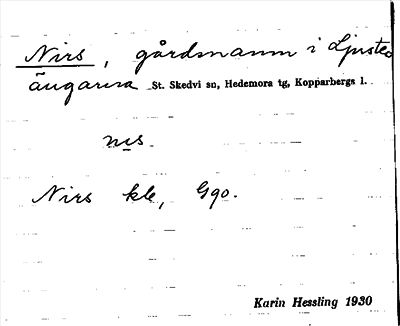 Nirs, gårdsnamn i Ljuster
ängarna St. Skedvi sn, Hedemora tg, Kopparbergs l.
nıs.
Nirs kle, Ggo.
Karin Hessling 1930